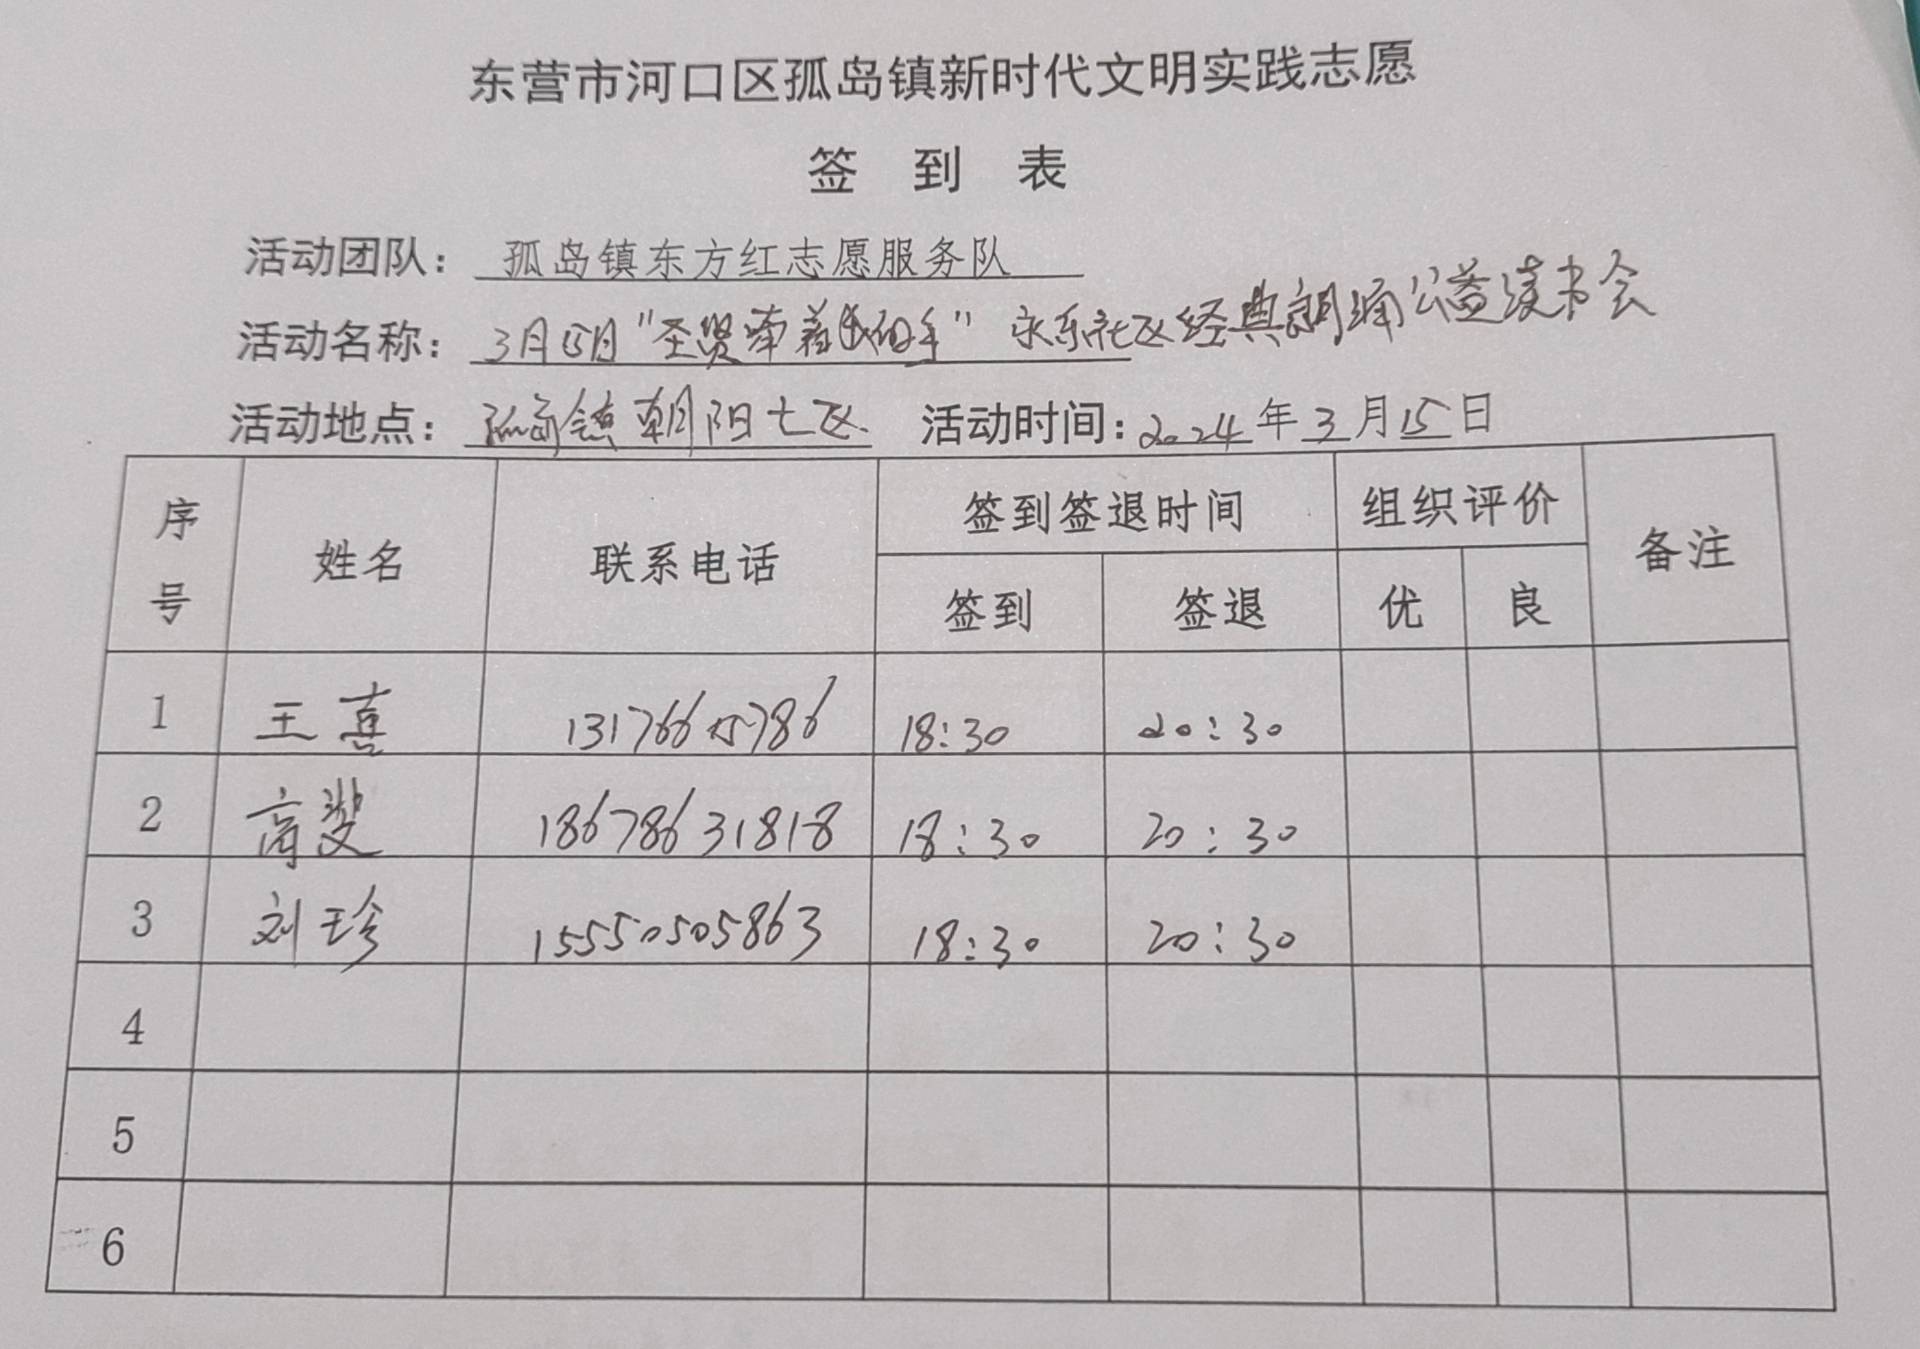 东营市河口区孤岛镇新时代文明实践志愿
签 到 表
活动团队：孤岛镇东方红志愿服务队
活动名称：3月15日"圣贤牵着我的手" 永乐社区经典朗诵公益读书会
活动地点：孤岛镇朝阳七区. 活动时间：2024年3月15日
序号 姓名 联系电话 签到签退时间 组织评价 备注
签到 签退 优 良
1 王喜 13176615786 18:30 20:30
2 高斐 18678631818 18:30 20:30
3 刘珍 15550505863 18:30 20:30
4
5
6